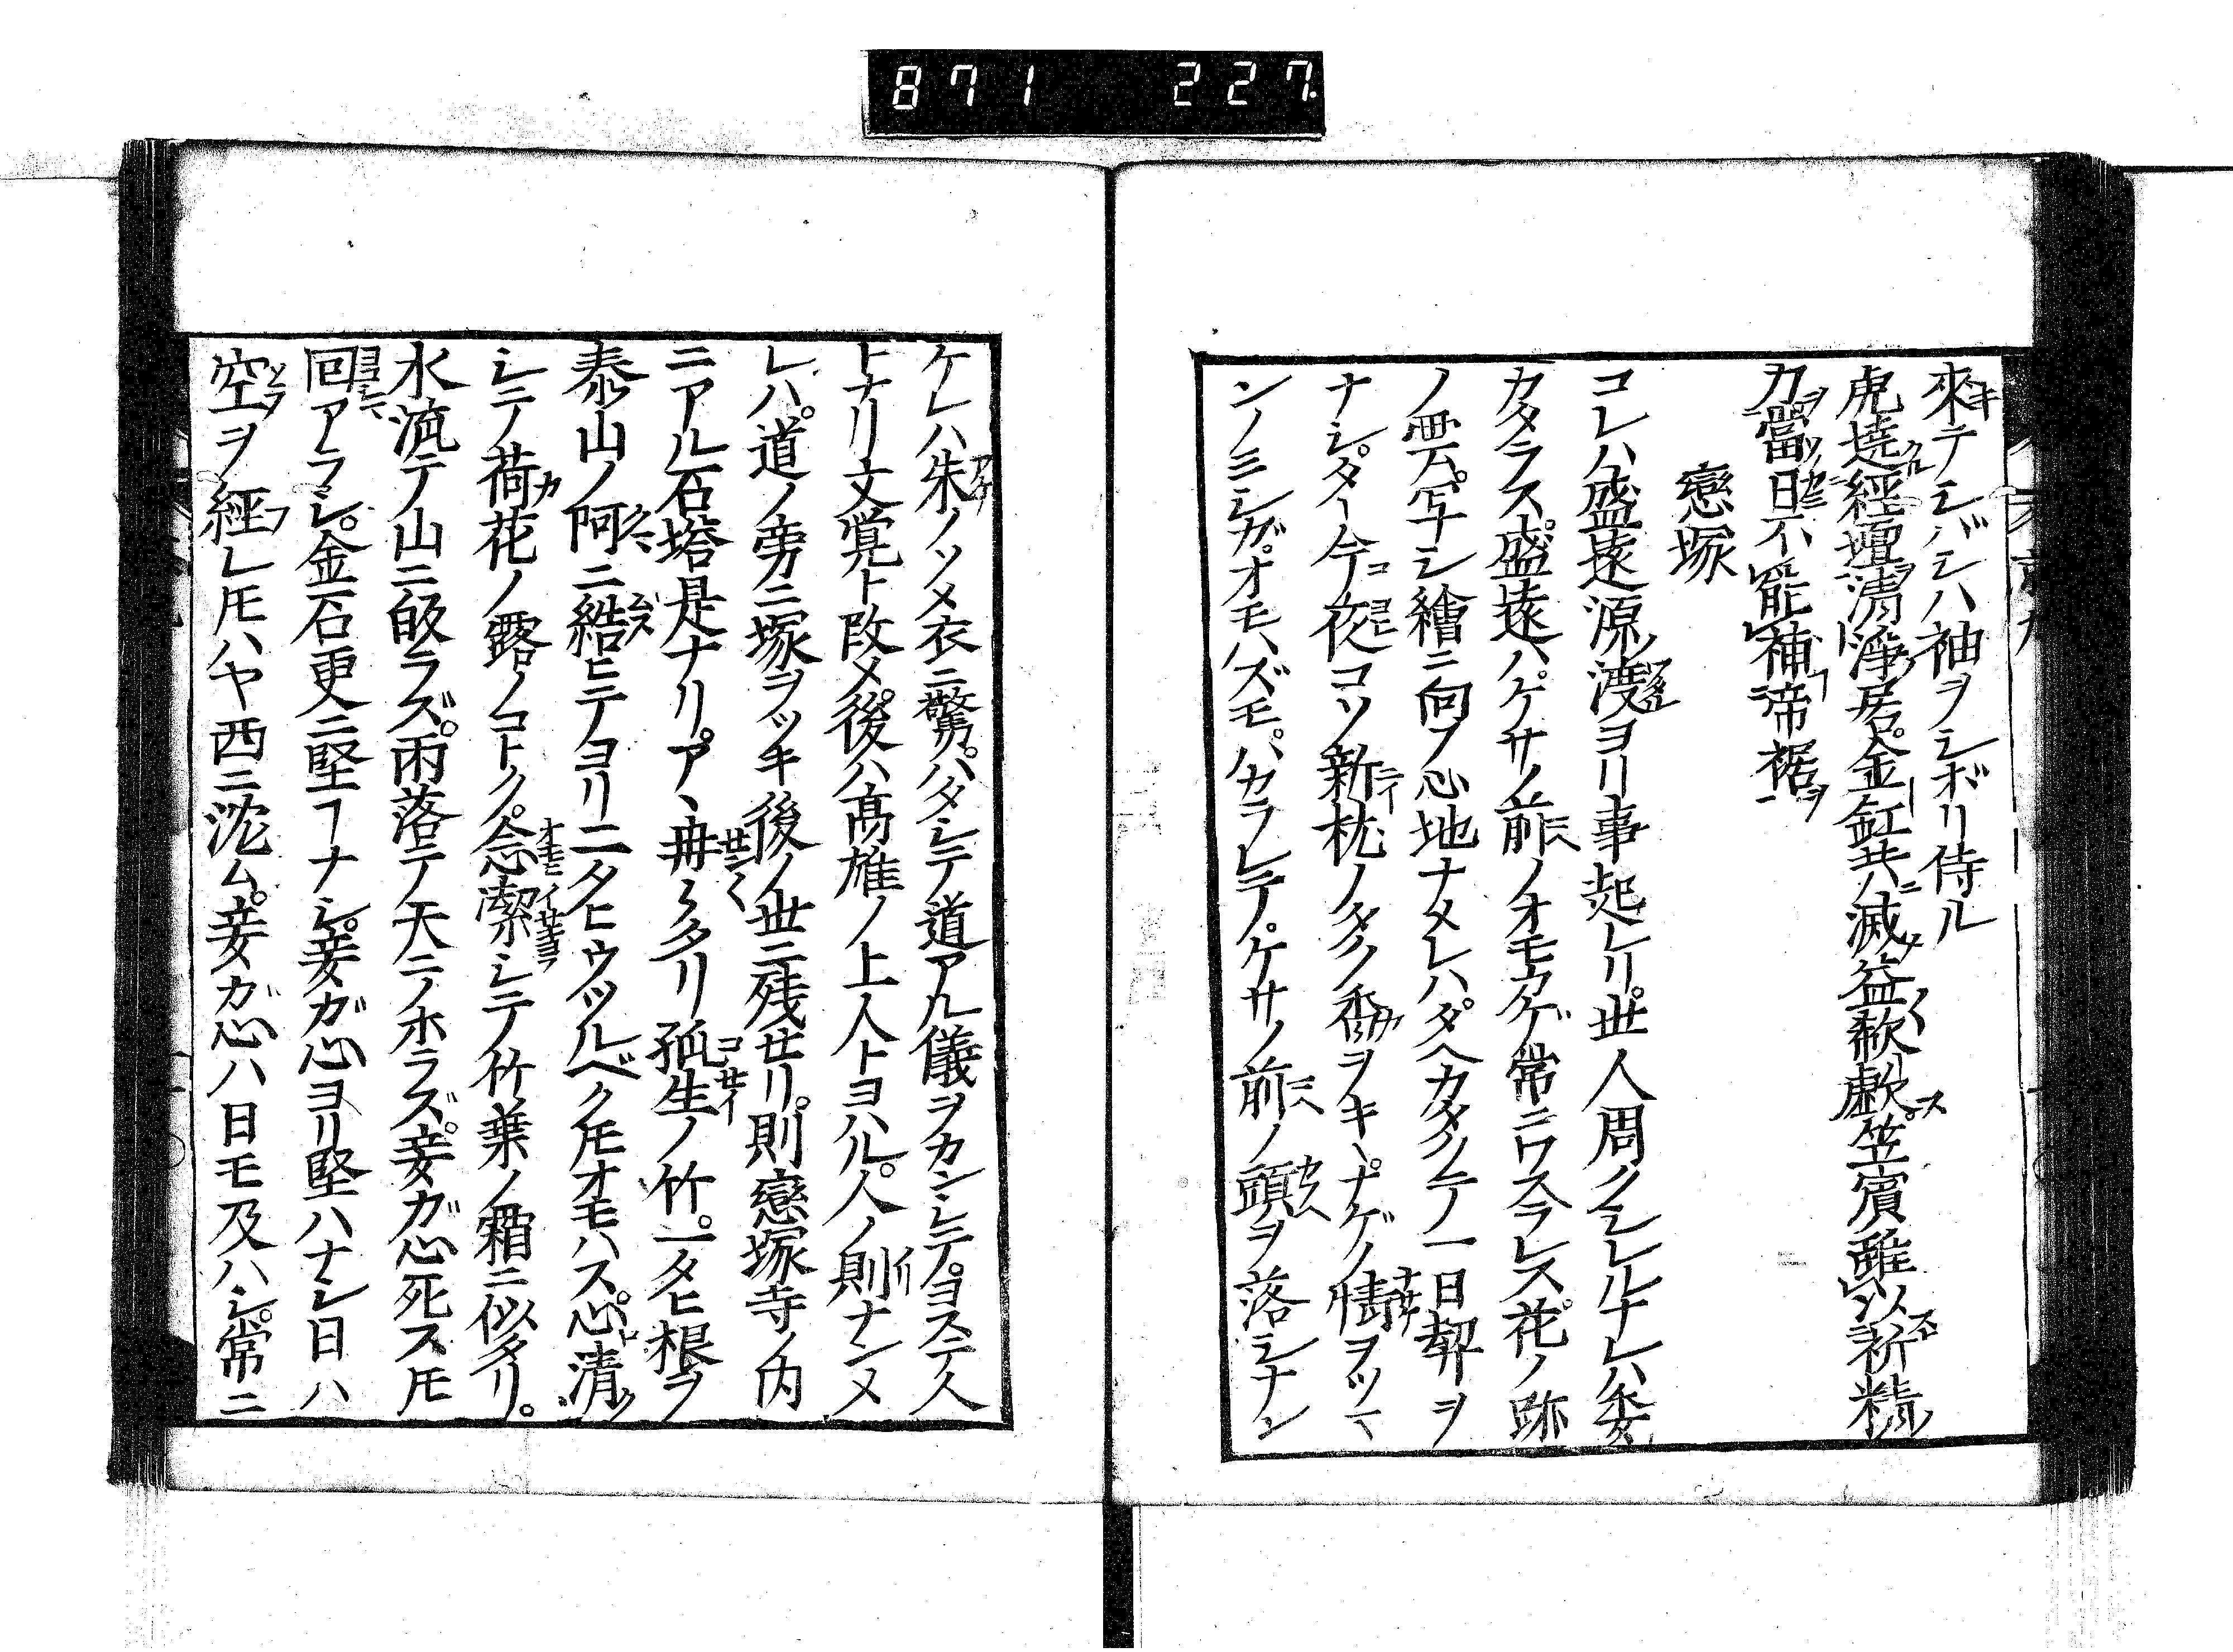 871 227.
來テシバシハ袖ヲシボリ侍ル
虎遶經壇清淨居金缸共滅益欷歔笠濱雖以祈精
力當日不能補帝裾
戀塚
コレハ盛遠源ノ渡ヨリ事起レリ世人周クシレルナレハ委
カタラス盛遠ハケサノ前ノオモカゲ常ニワスラレス花ノ跡
ノ雲写シ繪ニ向フ心地ナメレハタヘカタクテ一日契ヲ
ナシタ今夜コソ新枕ノタクノ香ヲキナゲノ情ヲツ
ンノミシガオモハズモハカラレテケサノ前ノ頭ヲ落シナン
ケレハ朱ノソメ衣ニ驚ハタシテ道アル儀ヲカンシテヨステ人
トナリ文覚ト改メ後ハ高雄ノ上人トヨハル人ノ則ナンメ
レハ道ノ旁ニ塚ヲツキ後ノ世ニ残セリ則戀塚寺ノ内
ニアル石塔是ナリアヽ冉々タリ孤生ノ竹一タヒ根ヲ
泰山ノ阿ニ結ヒテヨリ二タヒウツルベクモオモハス心清
シテ荷花ノ露ノコトク念潔シテ竹葉ノ霜ニ似タリ
水流テ山ニ皈ラズ雨落テ天ニノホラズ妾ガ心死スモ
回アラシ金石更ニ堅フナシ妾ガ心ヨリ堅ハナシ日ハ
空ヲ經レモハヤ西ニ沈ム妾ガ心ハ日モ及ハシ常ニ